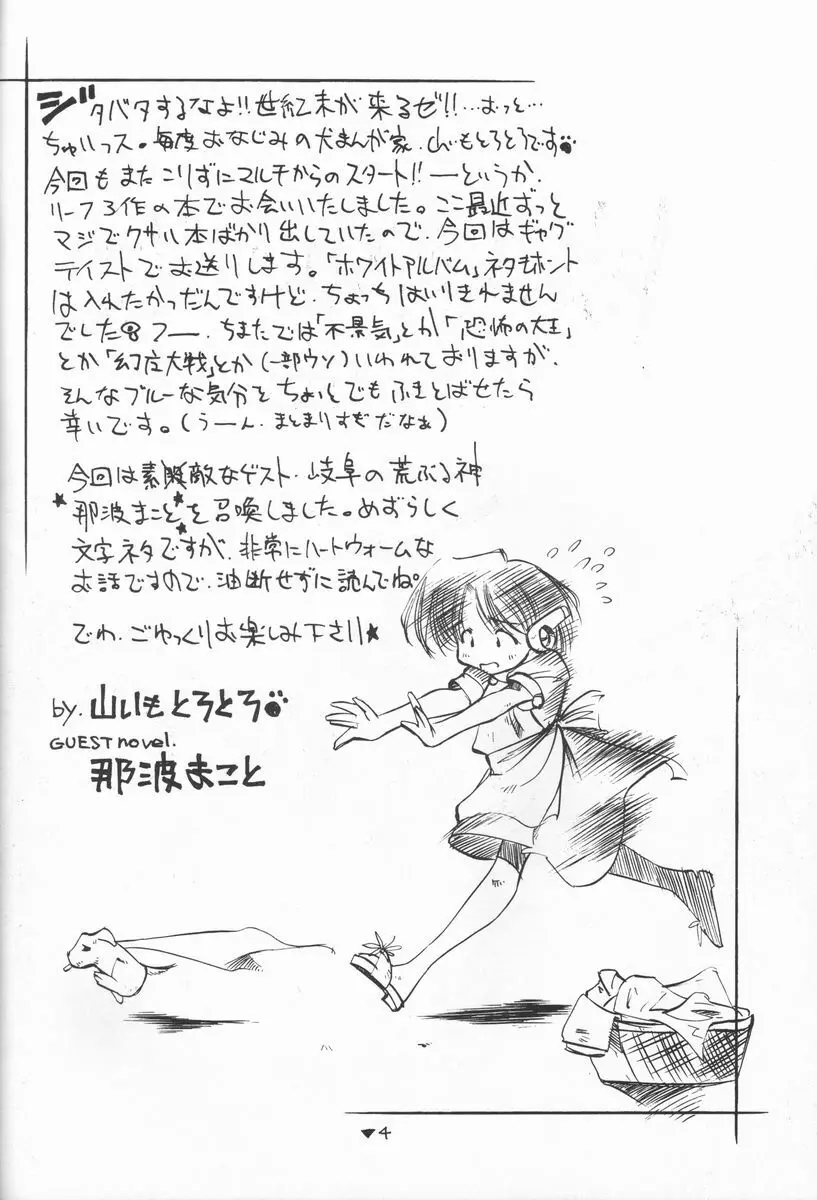 ジタバタするなよ!!世紀末が来るゼ!!…おっと…
ちゅいっス。毎度おなじみの犬まんが家、山いもとろとろです
今回もまたこりずにマルチからのスタート!!ーというか、
リーフ3作の本でお会いいたしました。ここ最近ずっと
マジでクサい本ばかり出していたので、今回はギャグ
テイストでお送りします。「ホワイトアルバム」ネタもホント
は入れたかっだんですけど、ちょっちはいりきれません
でした フー、ちまたでは「不景気」とか「恐怖の大王」
とか「幻応大戦」とか(一部ウソ)いわれておりますが、
そんなブルーな気分をちょいとでもふきとばせたら
幸いです。(うーん、まとまりすぎだなぁ)
今回は素敵なゲスト、岐阜の荒ぶる神
★那波まこと★を召喚しました。めずらしく
文字ネタですが、非常にハートウォームな
お話ですので、油断せずに読んでね。
でわ、ごゆっくりお楽しみ下さい★
by. 山いもとろとろ
GUEST novel.
那波まこと
▼4